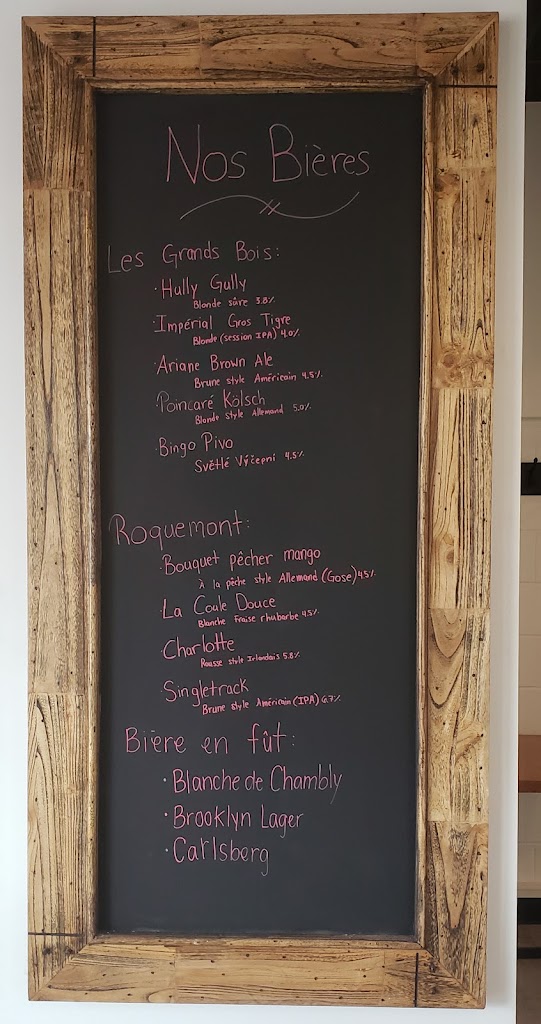 Nos Bières
Les Grands Bois:
·Hully Gully
Blonde sûre 3.8%
·Impérial Gros Tigre
Blonde (session IPA) 4.0%
·Ariane Brown Ale
Brune style Américain 4.5%
·Poincaré Kölsch
Blonde style Allemand 5.0%
·Bingo Pivo
Světlé Výčepní 4.5%
Roquemont:
·Bouquet pêcher mango
À la pêche style Allemand (Gose) 4.5%
·La Coule Douce
Blanche fraise rhubarbe 4.5%
·Charlotte
Rousse style Irlandais 5.8%
·Singletrack
Brune style Américain (IPA) 6.7%
Bière en fût:
·Blanche de Chambly
·Brooklyn Lager
·Carlsberg